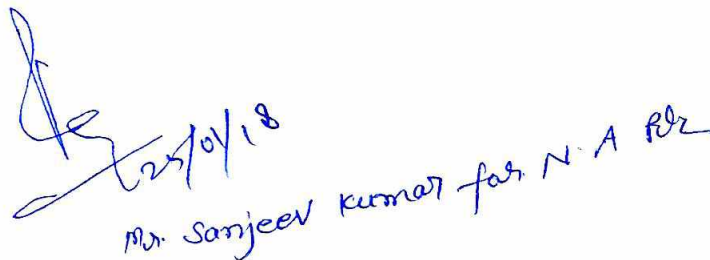 25/01/18
Mr. Sanjeev Kumar for N.A Plz